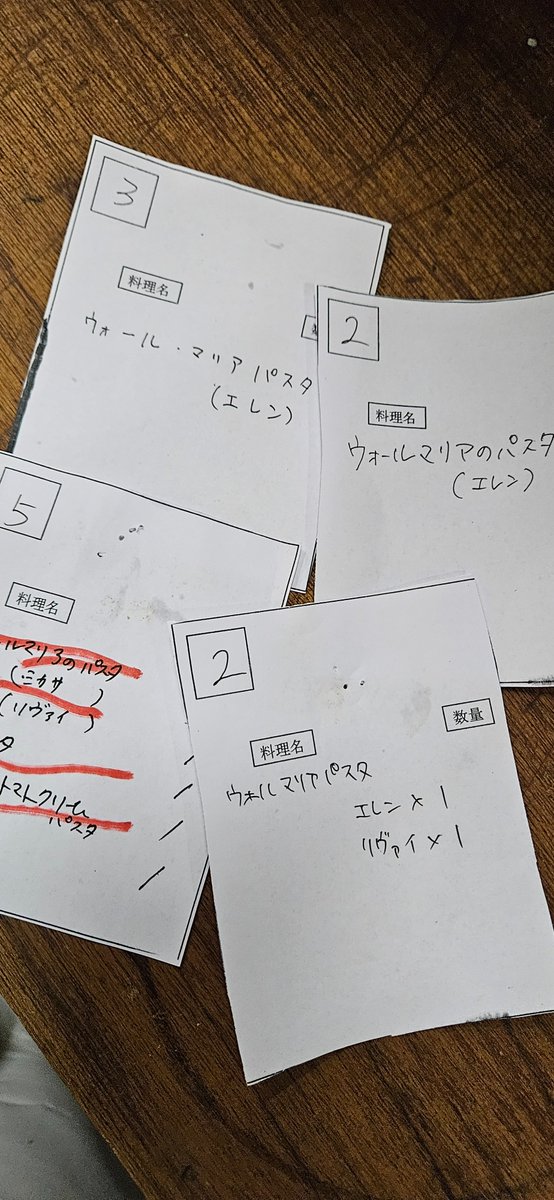 3
料理名
ウォール・マリアパスタ
(エレン)
2
料理名
ウォールマリアのパスタ
(エレン)
5
料理名
ルマリアのパスタ
(ミカサ)
(リヴァイ)
タ
トマトクリーム
パスタ
2
数量
料理名
ウォールマリアパスタ
エレン×1
リヴァイ×1